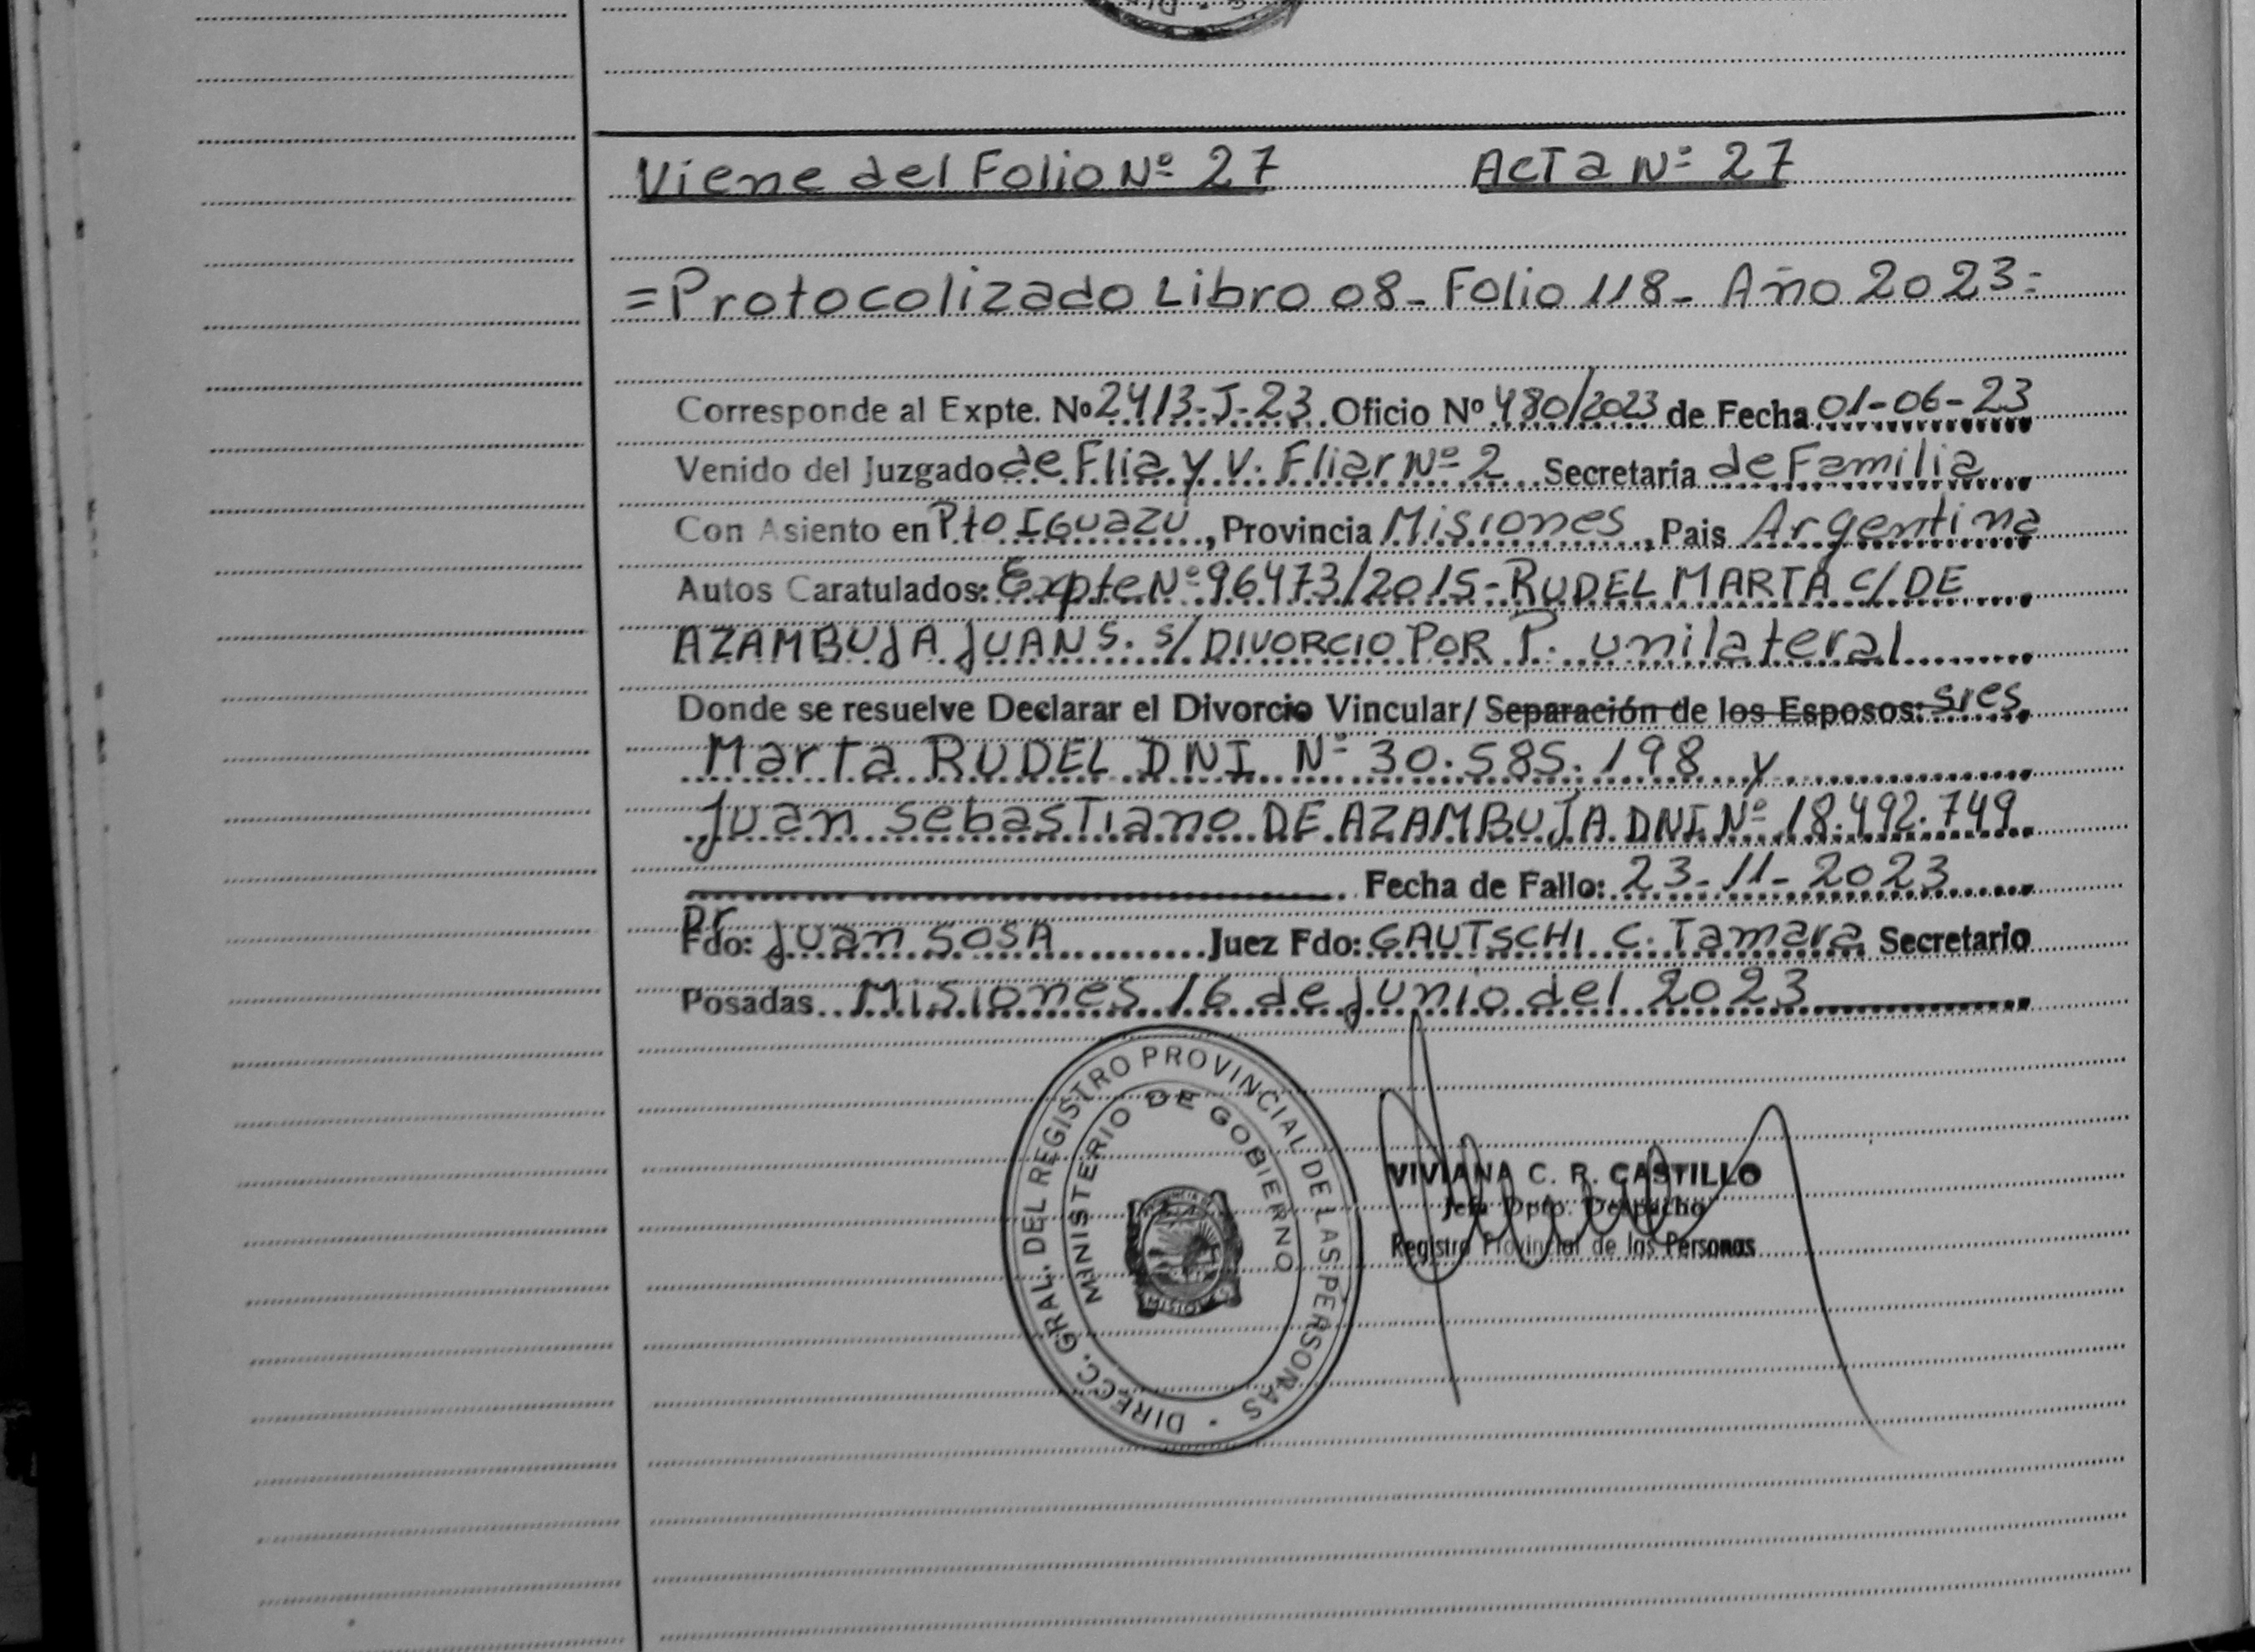 Viene del Folio Nº 27 Acta Nº 27
= Protocolizado Libro 08 - Folio 118 - Año 2023 =
Corresponde al Expte. Nº 2413-J-23 Oficio Nº 480/2023 de Fecha 01-06-23
Venido del Juzgado de Flia y V. Fliar Nº 2 Secretaría de Familia
Con Asiento en Pto Iguazú, Provincia Misiones, Pais Argentina
Autos Caratulados: Expte Nº 96473/2015 - RUDEL MARTA C/ DE
AZAMBUJA JUAN S. S/ DIVORCIO POR P. unilateral
Donde se resuelve Declarar el Divorcio Vincular/ Separación de los Esposos: sres
Marta RUDEL DNI Nº 30.585.198 y
Juan Sebastiano DE AZAMBUJA DNI Nº 18.492.749
Fecha de Fallo: 23-11-2023
Dr
Fdo: Juan SOSA Juez Fdo: GAUTSCHI C. Tamara Secretario
Posadas Misiones 16 de junio del 2023
DIRECC. GRAL. DEL REGISTRO PROVINCIAL DE LAS PERSONAS
MINISTERIO DE GOBIERNO
PROVINCIA DE
MISIONES
VIVIANA C. R. CASTILLO
Jefa Dpto. Despacho
Registro Provincial de las Personas